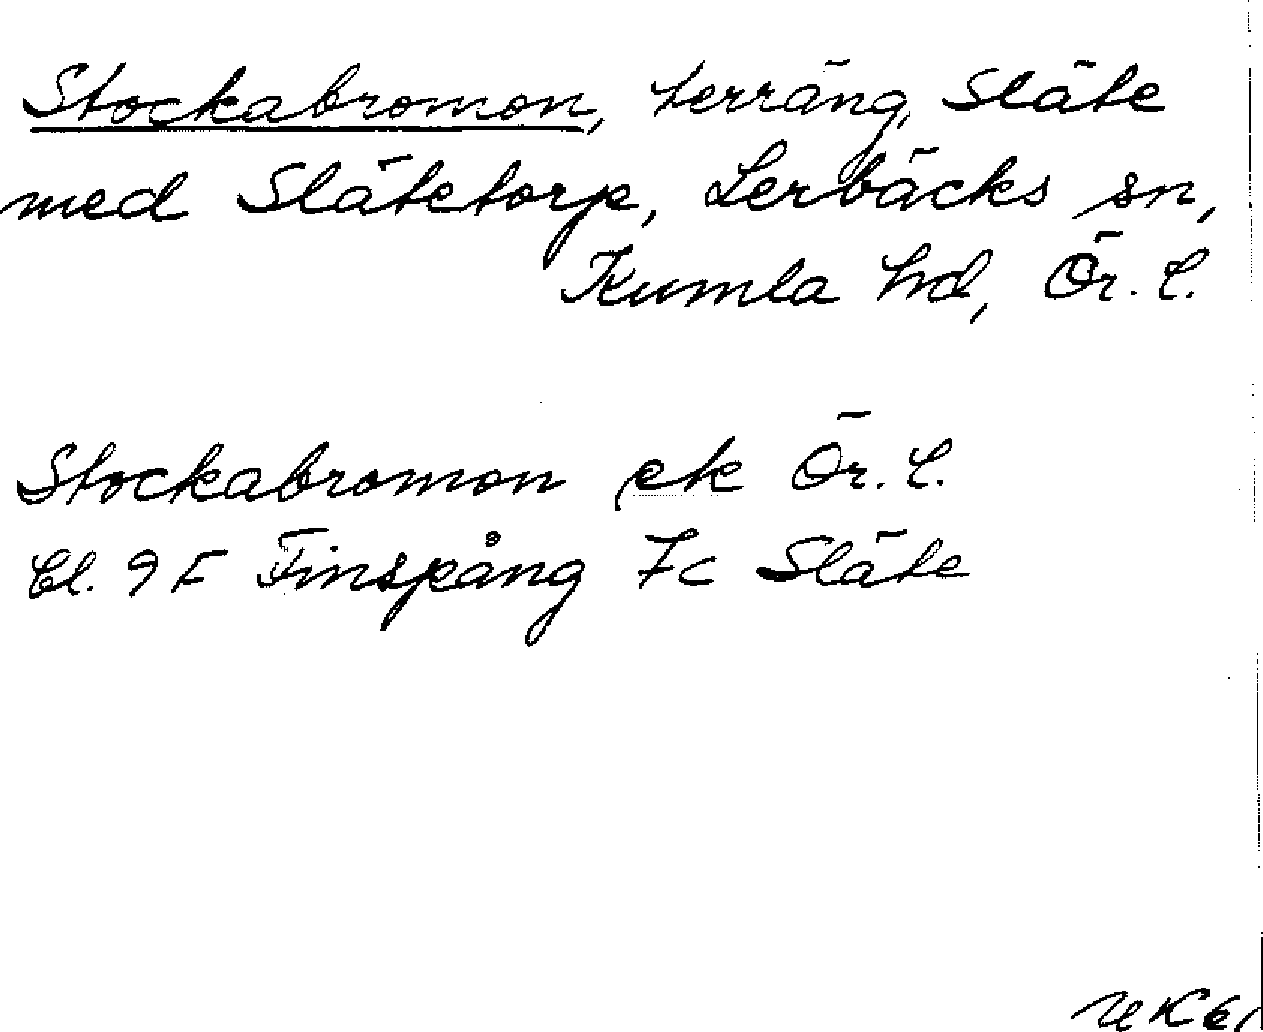 Stockabromon, terräng, Släte
med Slätetorp, Lerbäcks sn,
Kumla hd, Ör. l.
Stockabromon ek Ör. l.
Bl. 9 F Finspång 7c Släte